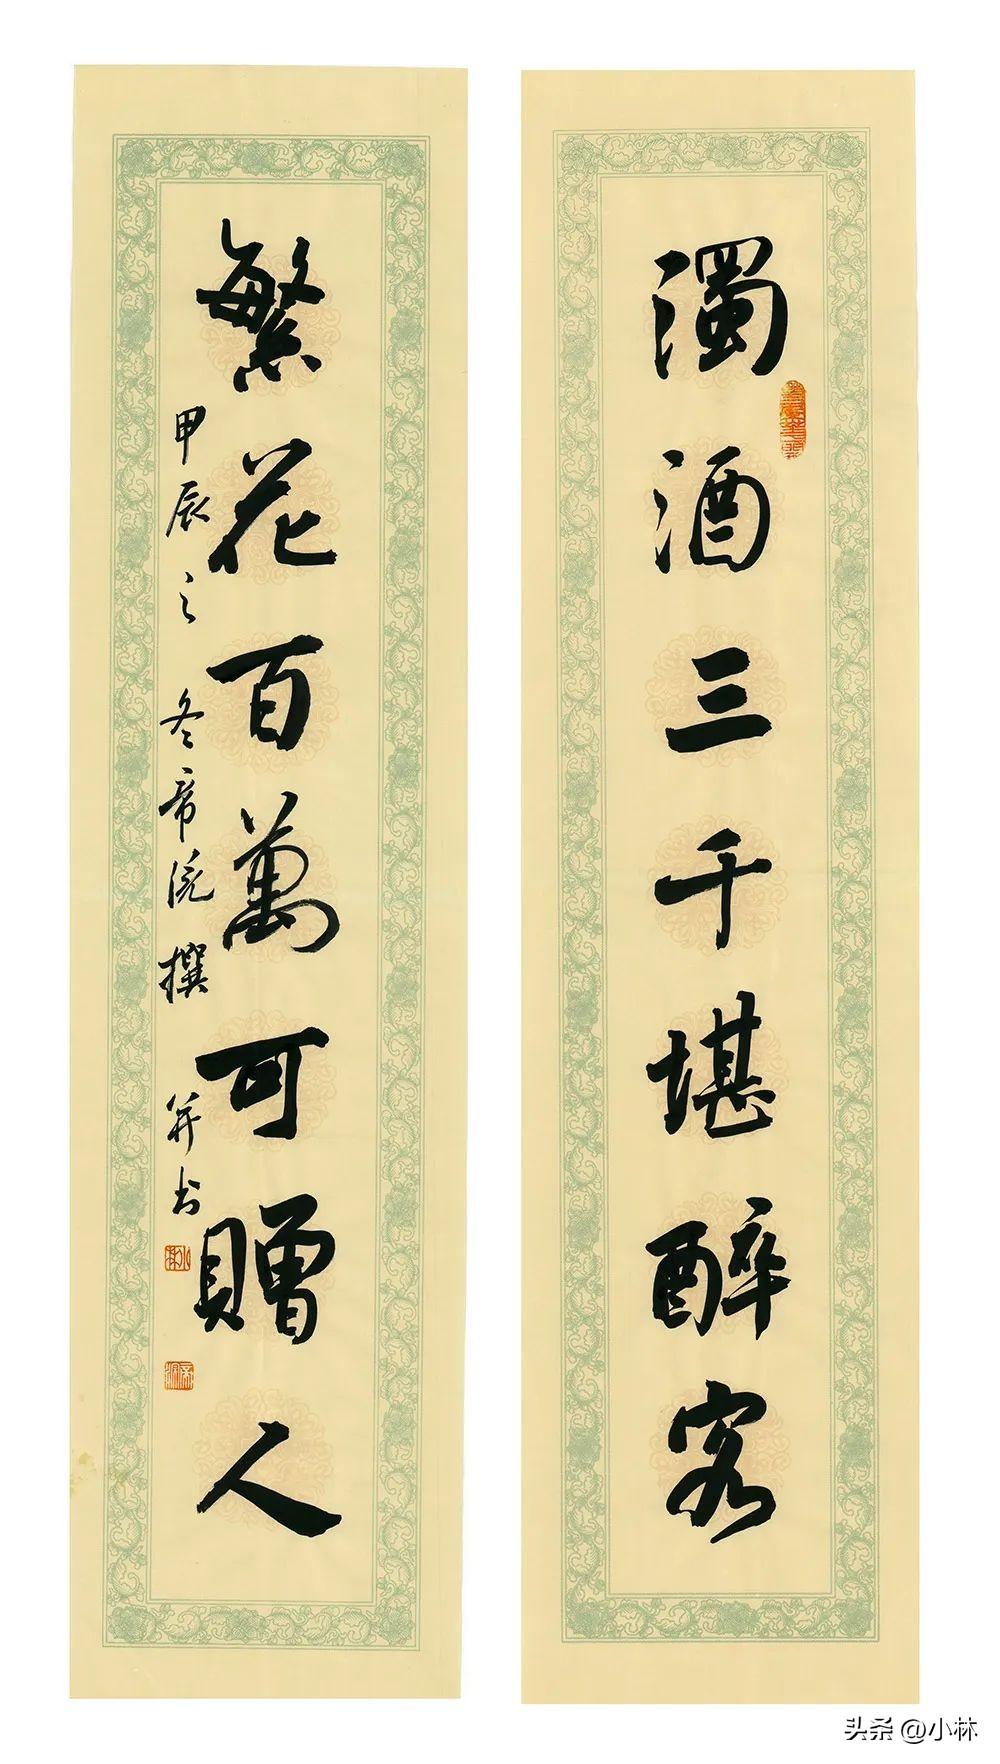 濁酒三千堪醉客
繁花百萬可贈人
甲辰之冬帝浣撰并书
头条 @小林